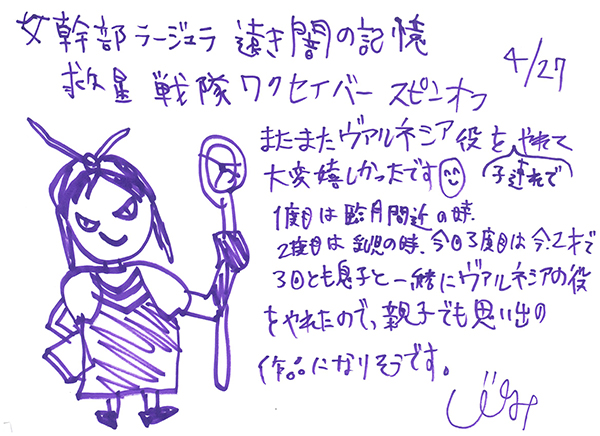 女幹部ラージュラ 遠き闇の記憶
救星戦隊ワクセイバー スピンオフ
4/27
またまたヴァルネシア役をやれて
大変嬉しかったです
子連れで
1度目は臨月間近の時、
2度目は乳児の時、今回3度目は今、2才で
3回とも息子と一緒にヴァルネシアの役
をやれたので、親子でも思い出の
作品になりそうです。